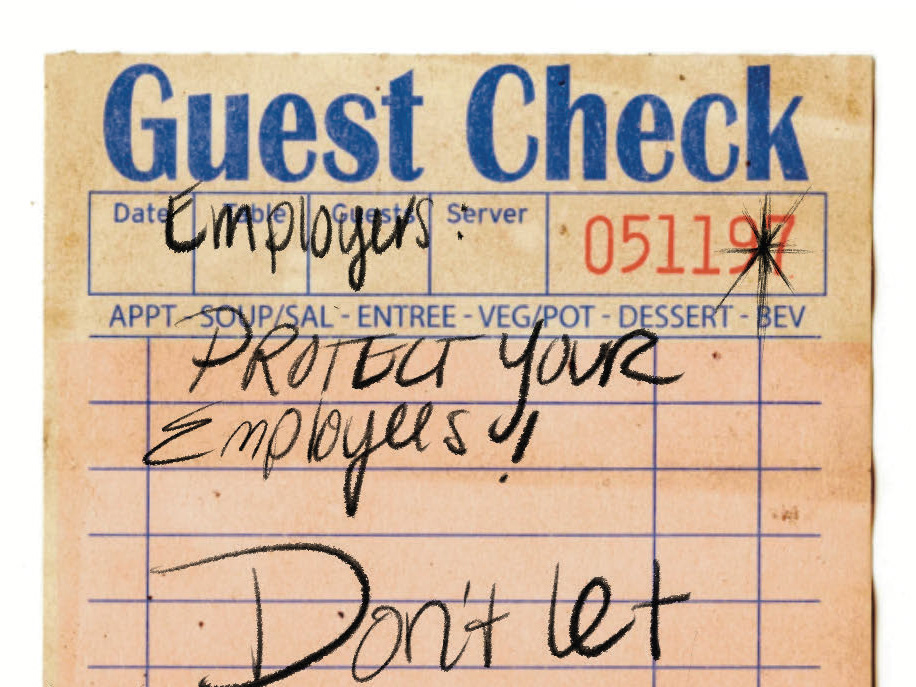 Guest Check
Date Table Guests Server 051197
Employers:
APPT - SOUP/SAL - ENTREE - VEG/POT - DESSERT - BEV
PROTECT YOUR
Employees!
Don't let